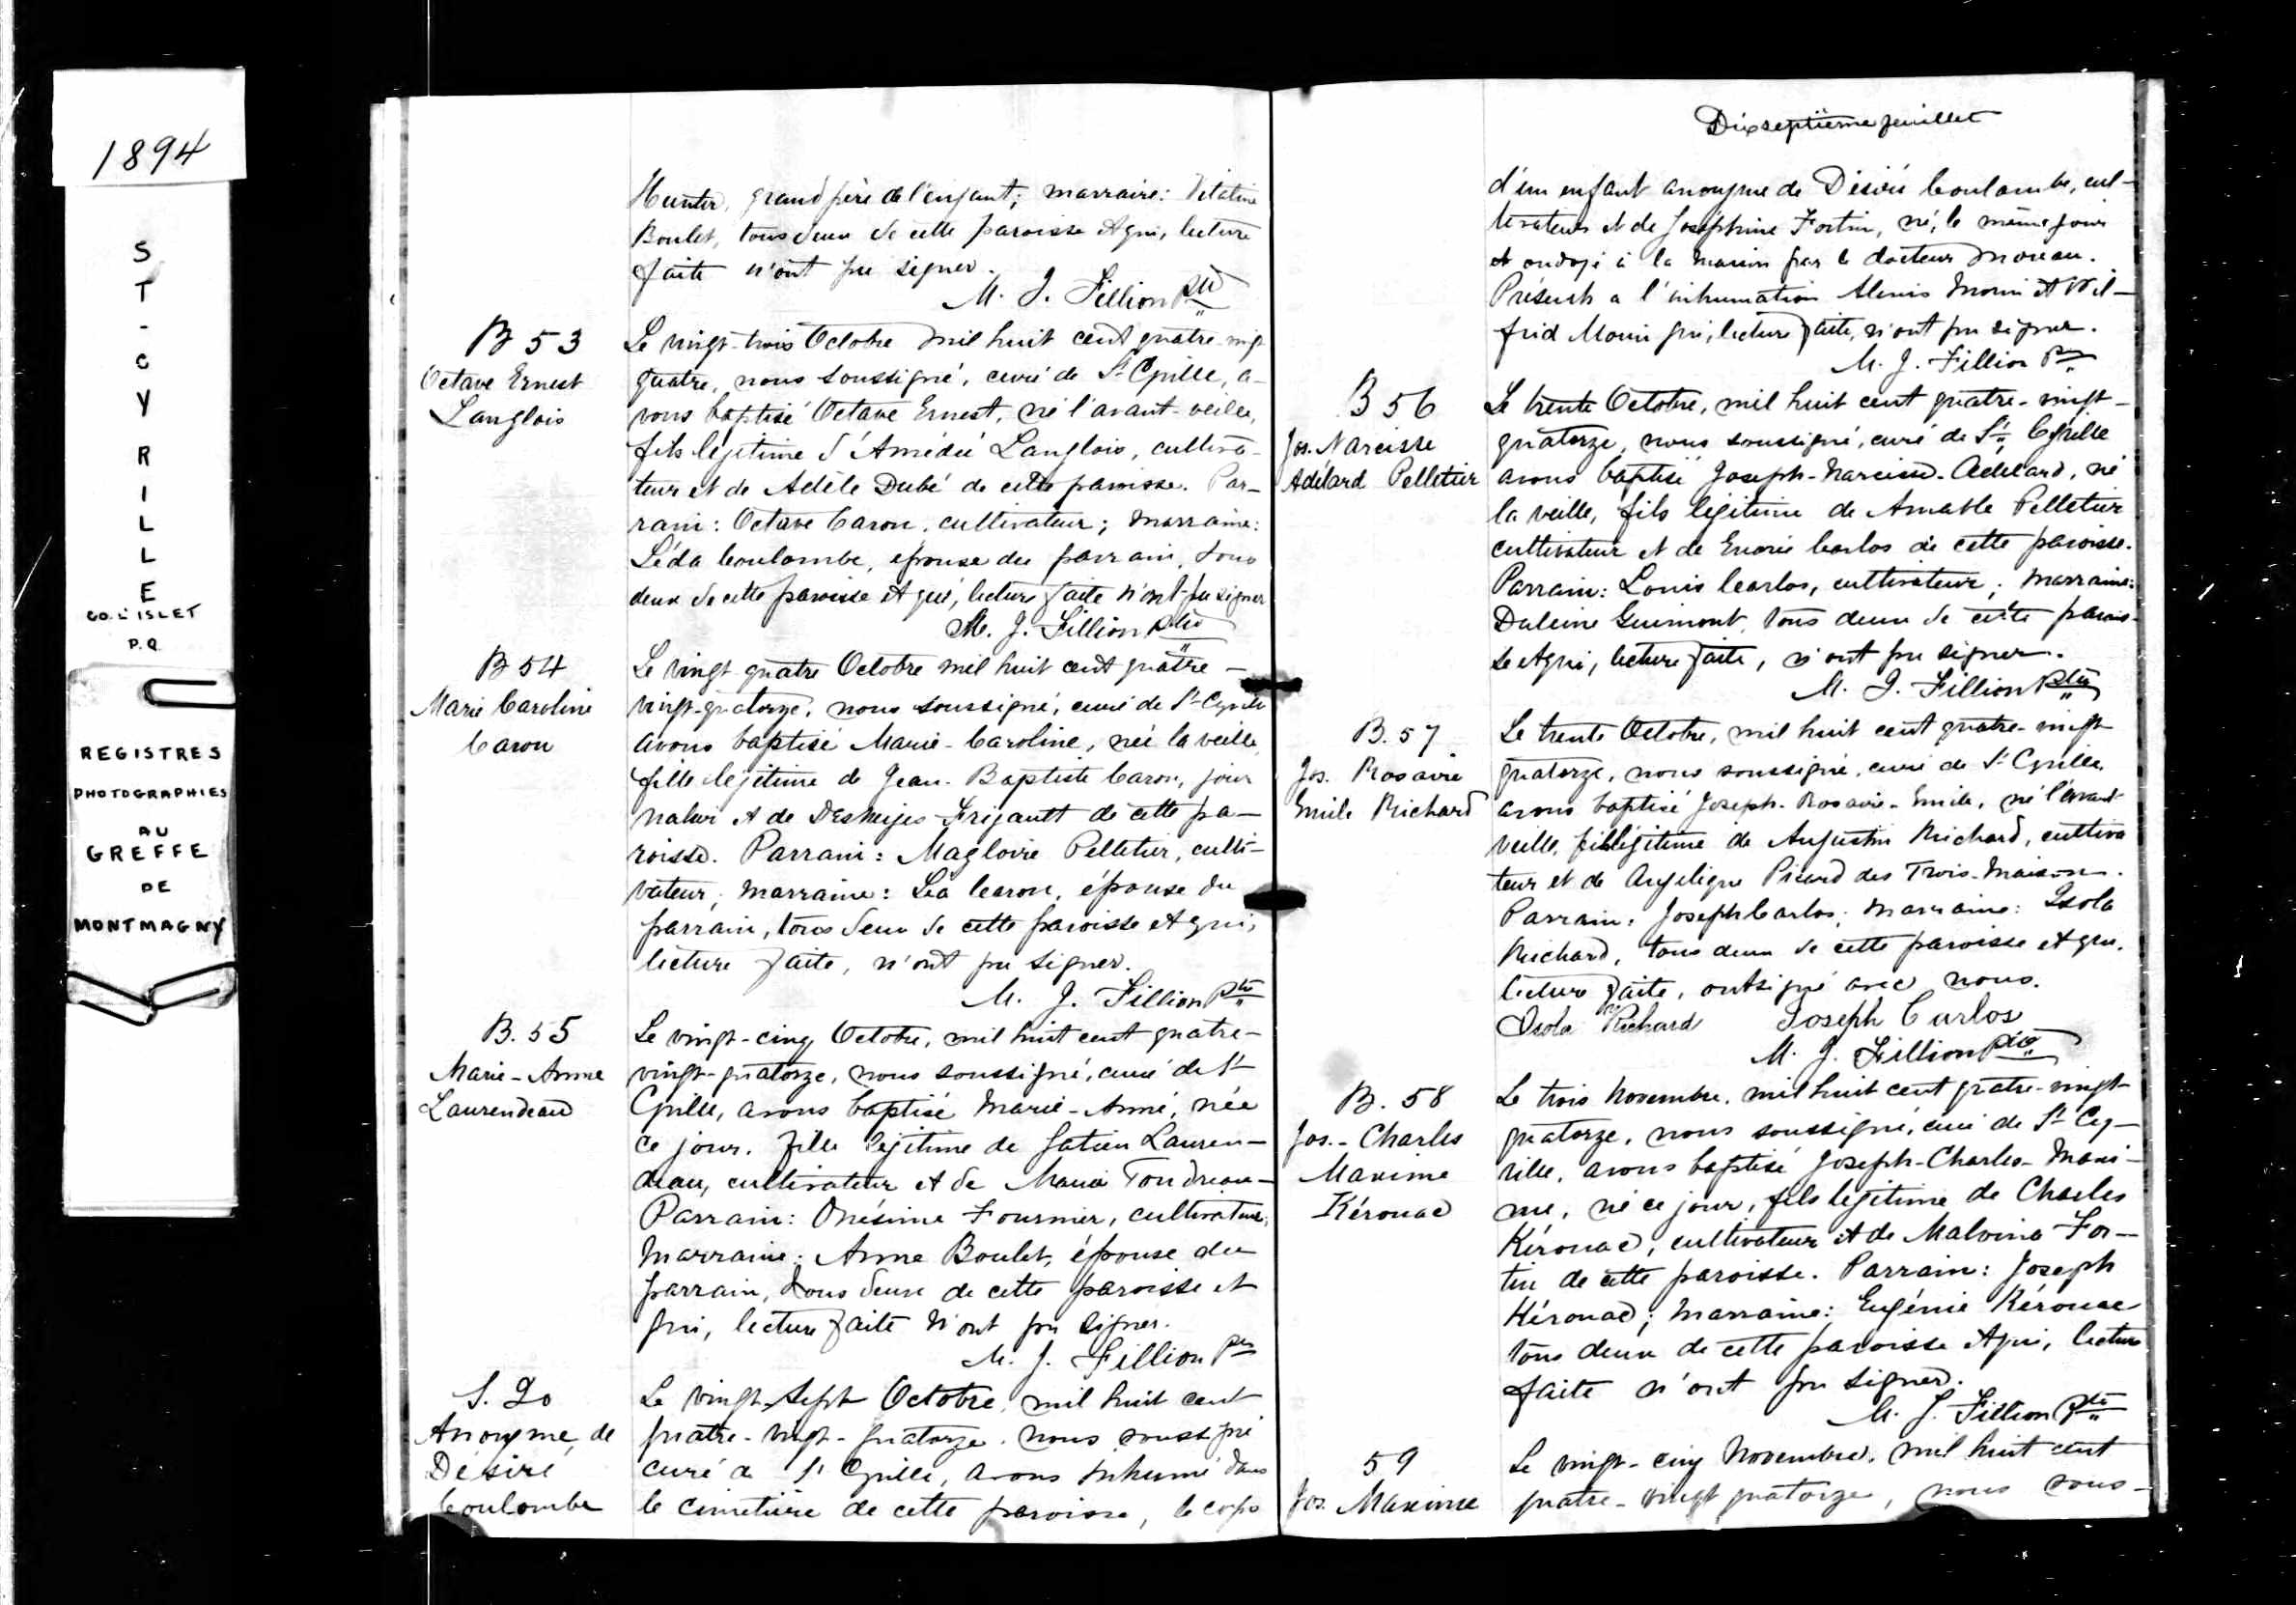 1894
S
T
-
C
Y
R
I
L
L
E
CO. L'ISLET
P.Q.
REGISTRES
PHOTOGRAPHIES
AU
GREFFE
DE
MONTMAGNY
Hunter, grand père de l'enfant; marraine: Vitaline
Boulet, tous deux de cette paroisse et qui, lecture
faite n'ont pu signer.
M. J. Fillion Ptre
B 53
Octave Ernest
Langlois
Le vingt-trois Octobre mil huit cent quatre-vingt
quatre, nous soussigné, curé de St Cyrille, a-
vons baptisé Octave Ernest, né l'avant-veille,
fils légitime d'Amédée Langlois, cultiva-
teur et de Adèle Dubé de cette paroisse. Par-
rain: Octave Caron, cultivateur; marraine:
Léda Coulombe, épouse du parrain, tous
deux de cette paroisse et qui, lecture faite n'ont pu signer
M. J. Fillion Ptre
B 54
Marie Caroline
Caron
Le vingt quatre Octobre mil huit cent quatre-
vingt-quatorze, nous soussigné, curé de St-Cyrille
avons baptisé Marie-Caroline, née la veille,
fille légitime de Jean-Baptiste Caron, jour
nalier et de Desneiges Frigault de cette pa-
roisse. Parrain: Magloire Pelletier, culti-
vateur; marraine: Léa Caron, épouse du
parrain, tous deux de cette paroisse et qui,
lecture faite, n'ont pu signer.
M. J. Fillion Ptre
B. 55
Marie-Anne
Laurendeau
Le vingt-cinq Octobre, mil huit cent quatre-
vingt-quatorze, nous soussigné, curé de St
Cyrille, avons baptisé Marie-Anne, née
ce jour, fille légitime de Gatien Lauren-
deau, cultivateur et de Maria Tondreau-
Parrain: Onésime Fournier, cultivateur;
Marraine: Anne Boulet, épouse du
parrain, tous deux de cette paroisse et
qui, lecture faite n'ont pu signer.
M. J. Fillion Ptre
S. 20
Anonyme de
Désiré
Coulombe
Le vingt-sept Octobre, mil huit cent
quatre-vingt-quatorze, nous soussigné
curé de St Cyrille, avons inhumé dans
le cimetière de cette paroisse, le corps
Dixseptième feuillet
d'un enfant anonyme de Désiré Coulombe, cul-
tivateur et de Joséphine Fortin, né, le même jour
et ondoyé à la maison par le docteur Moreau.
Présents a l'inhumation Alexis Morin et Wil-
frid Morin qui, lecture faite, n'ont pu signer.
M. J. Fillion Ptre
B 56
Jos. Narcisse
Adélard Pelletier
Le trente Octobre, mil huit cent quatre-vingt-
quatorze, nous soussigné, curé de St Cyrille
avons baptisé Joseph-Narcisse-Adélard, né
la veille, fils légitime de Amable Pelletier
cultivateur et de Carlos de cette paroisse.
Parrain: Louis Carlos, cultivateur; Marraine:
Guimont, tous deux de cette parois-
se et qui, lecture faite, n'ont pu signer.
M. J. Fillion Ptre
B. 57
Jos. Rosaire
Emile Richard
Le trente Octobre, mil huit cent quatre-vingt
quatorze, nous soussigné, curé de St Cyrille,
avons baptisé Joseph-Rosaire-Emile, né l'avant
veille, fils légitime de Augustin Richard, cultiva
teur et de Angélique Picard des Trois-Maisons.
Parrain: Joseph Carlos; Marraine: Isola
Richard, tous deux de cette paroisse et qui,
lecture faite, ont signé avec nous.
Isola Richard Joseph Carlos
M. J. Fillion Ptre
B. 58
Jos.-Charles
Maxime
Kérouac
Le trois Novembre, mil huit cent quatre-vingt-
quatorze, nous soussigné, curé de St Cy-
rille, avons baptisé Joseph-Charles-Maxi-
me, né ce jour, fils légitime de Charles
Kérouac, cultivateur et de Malvina For-
tin de cette paroisse. Parrain: Joseph
Kérouac; Marraine: Eugénie Kérouac
tous deux de cette paroisse et qui, lecture
faite n'ont pu signer.
M. J. Fillion Ptre
59
Jos. Maxime
Le vingt-cinq Novembre, mil huit cent
quatre-vingt quatorze, nous sous-